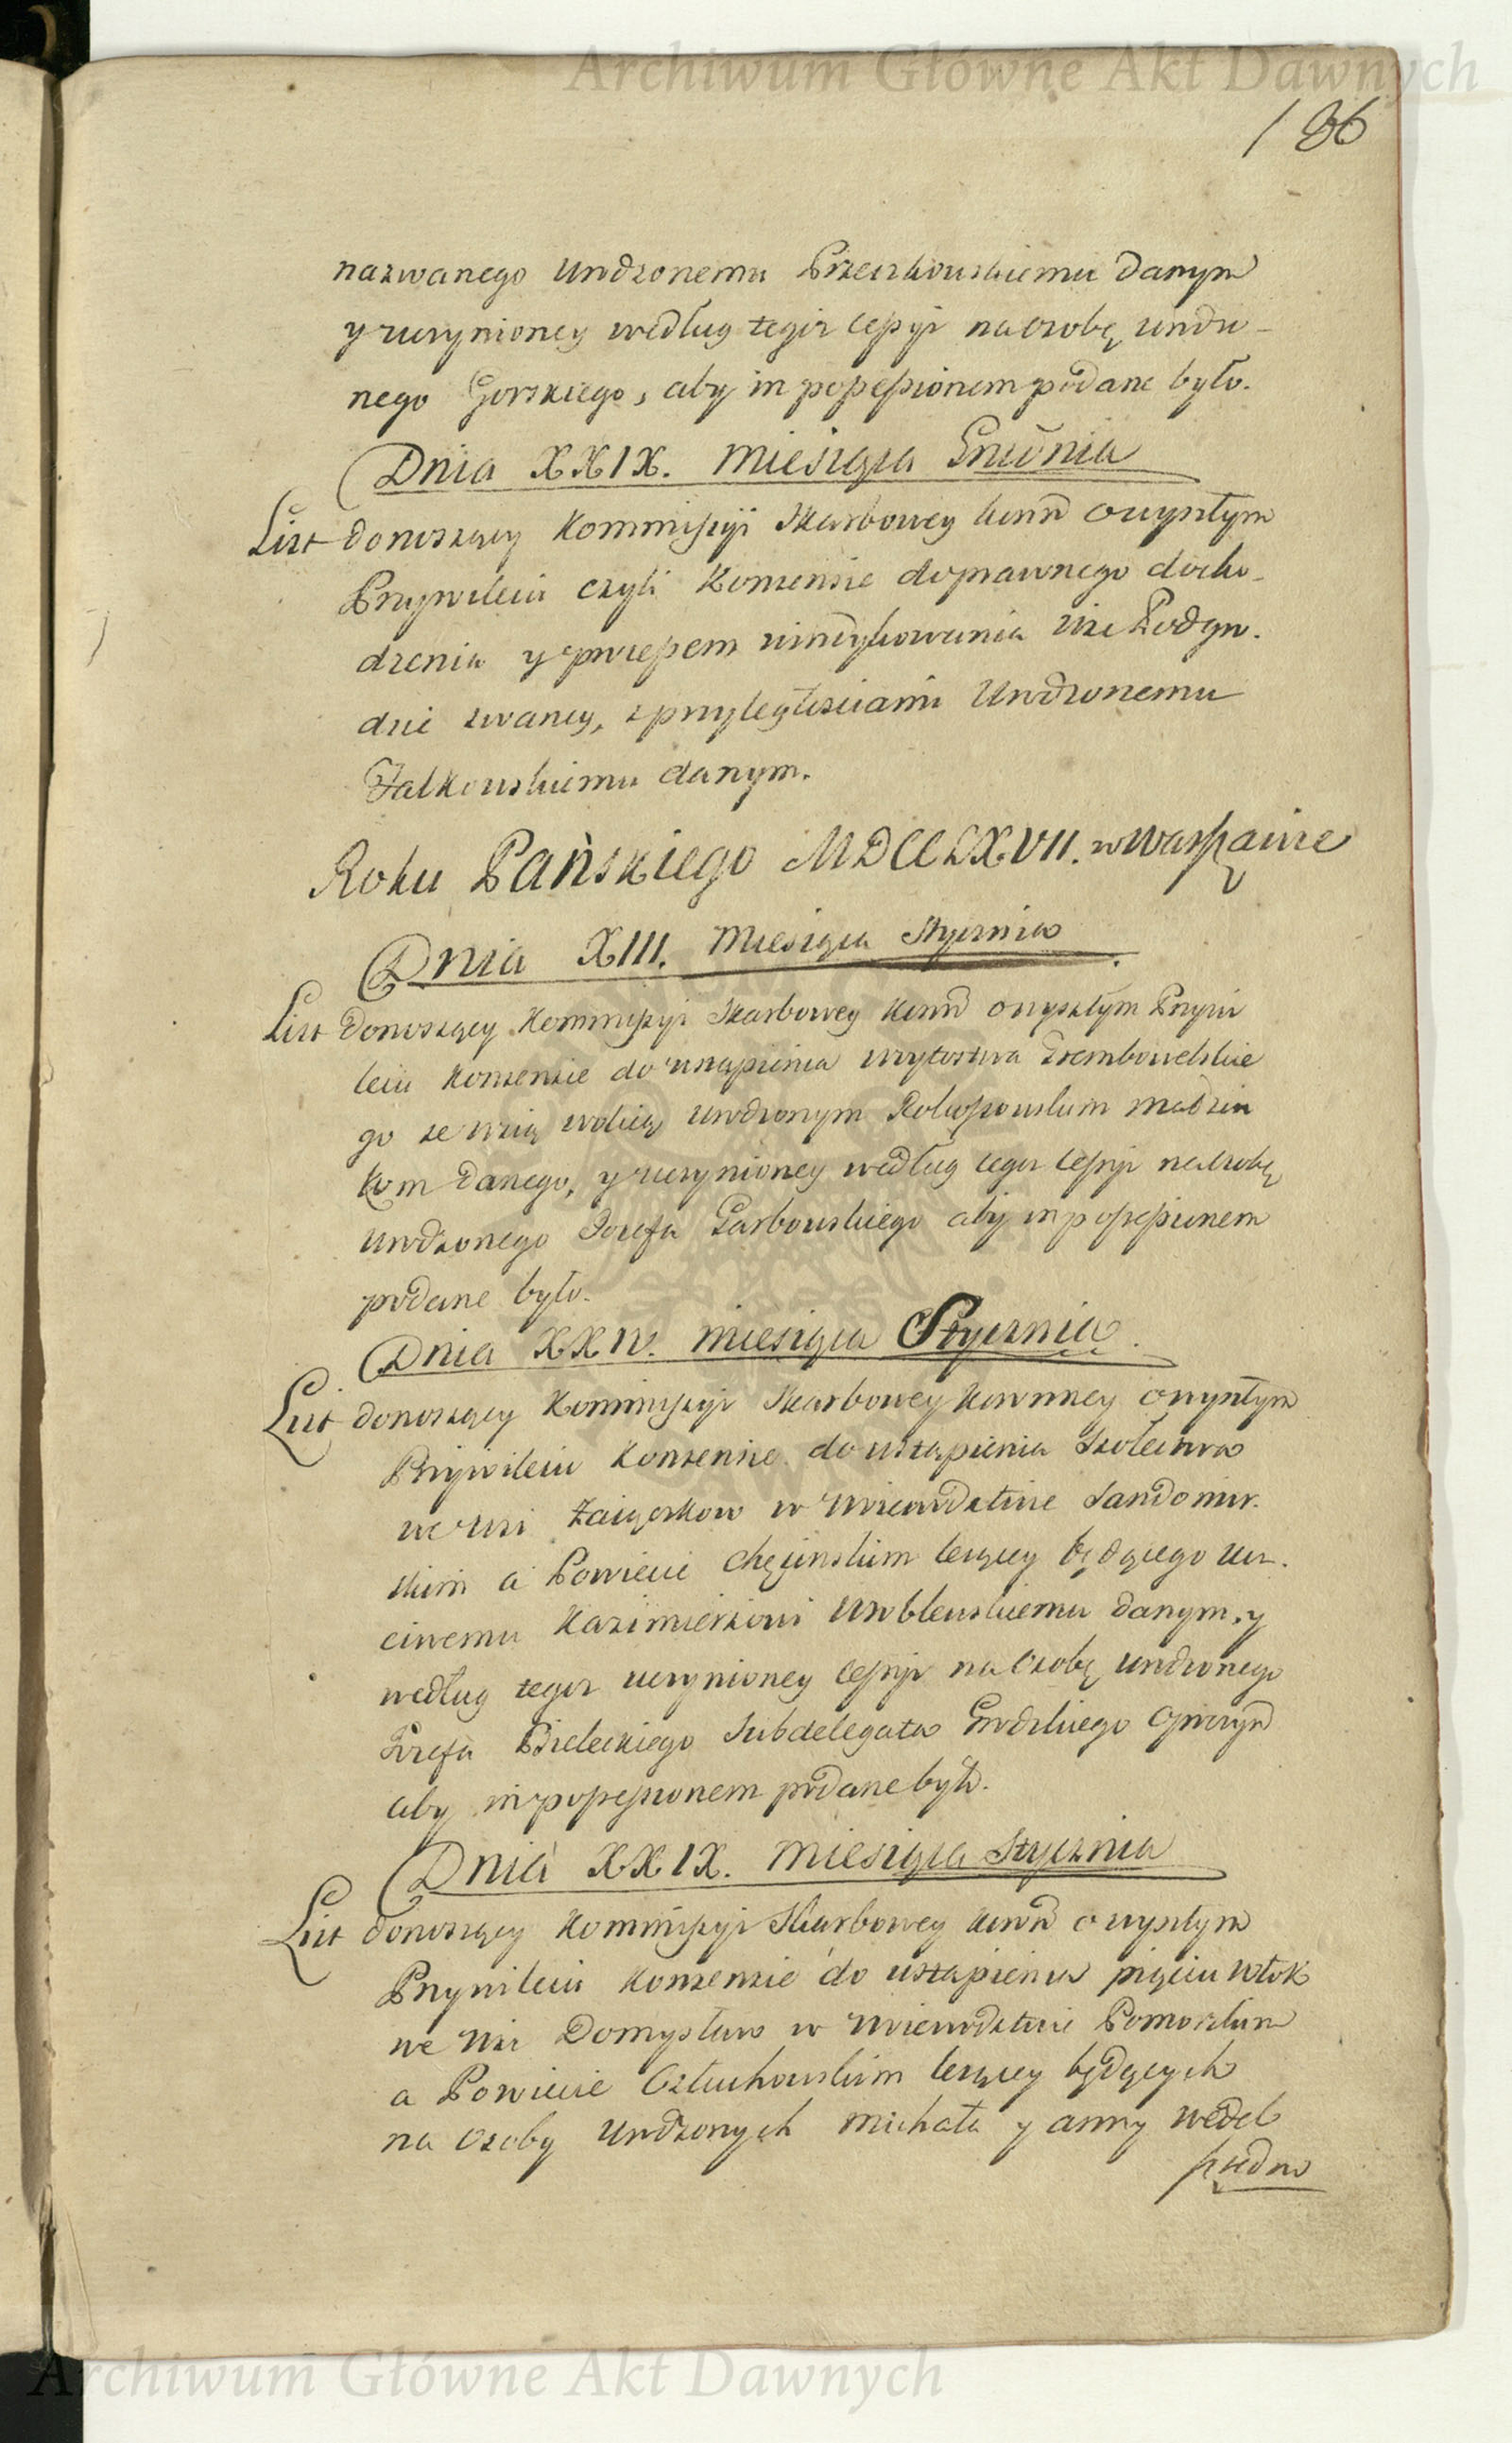 Archiwum Główne Akt Dawnych
136
nazwanego Urodzonemu danym
y uczynioney według tegoż cessyi na osobę urodzo-
nego Gorskiego, aby in possessionem podane było.
Dnia XXIX. Miesiąca Grudnia
List donoszący Kommissyi Skarbowey kor̄n̄ o wyszłym
Przywileiu czyli Konsensie do prawnego docho-
dzenia y windykowania Wsi
dzie zwaney, z przyległosciami Urodzonemu
Falkowskiemu danym.
Roku Pańskiego MDCCLXVII. w Warszawie
Dnia XIII. Miesiąca Stycznia
List donoszący Kommissyi Skarbowey kor̄n̄ o wyszłym Przywi
leiu Konsensie do ustąpienia woytostwa Trembowelskie
go ze wsią wolicą urodzonym małżon
kom danego, y uczynioney według tegoż cessyi na osobę
urodzonego Jozefa Garbowskiego aby in possessionem
podane było.
Dnia XXIV. Miesiąca Stycznia.
List donoszący Kommissyi Skarbowey koronney o wyszłym
Przywileiu Konsensie do ustąpienia Szołectwa
we wsi w woiewodztwie Sandomir-
skim a Powiecie Chęcinskim leżącey będącego ucz-
ciwemu Kazimierzowi Wroblewskiemu danym, y
według tegoż uczynioney cessyi na Osobę urodzonego
Jozefa Bieleckiego Subdelegata Grodzkiego
aby in possessionem podane było.
Dnia XXIX. Miesiąca Stycznia
List donoszący Kommissyi Skarbowey kor̄n̄ o wyszłym
Przywileiu Konsensie do ustąpienia pięciu Włok
we Wsi Domysław w woiewodztwie Pomorskim
a Powiecie Człuchowskim leżącey będących
na Osoby Urodzonych Michała y Anny Wedel
Archiwum Główne Akt Dawnych